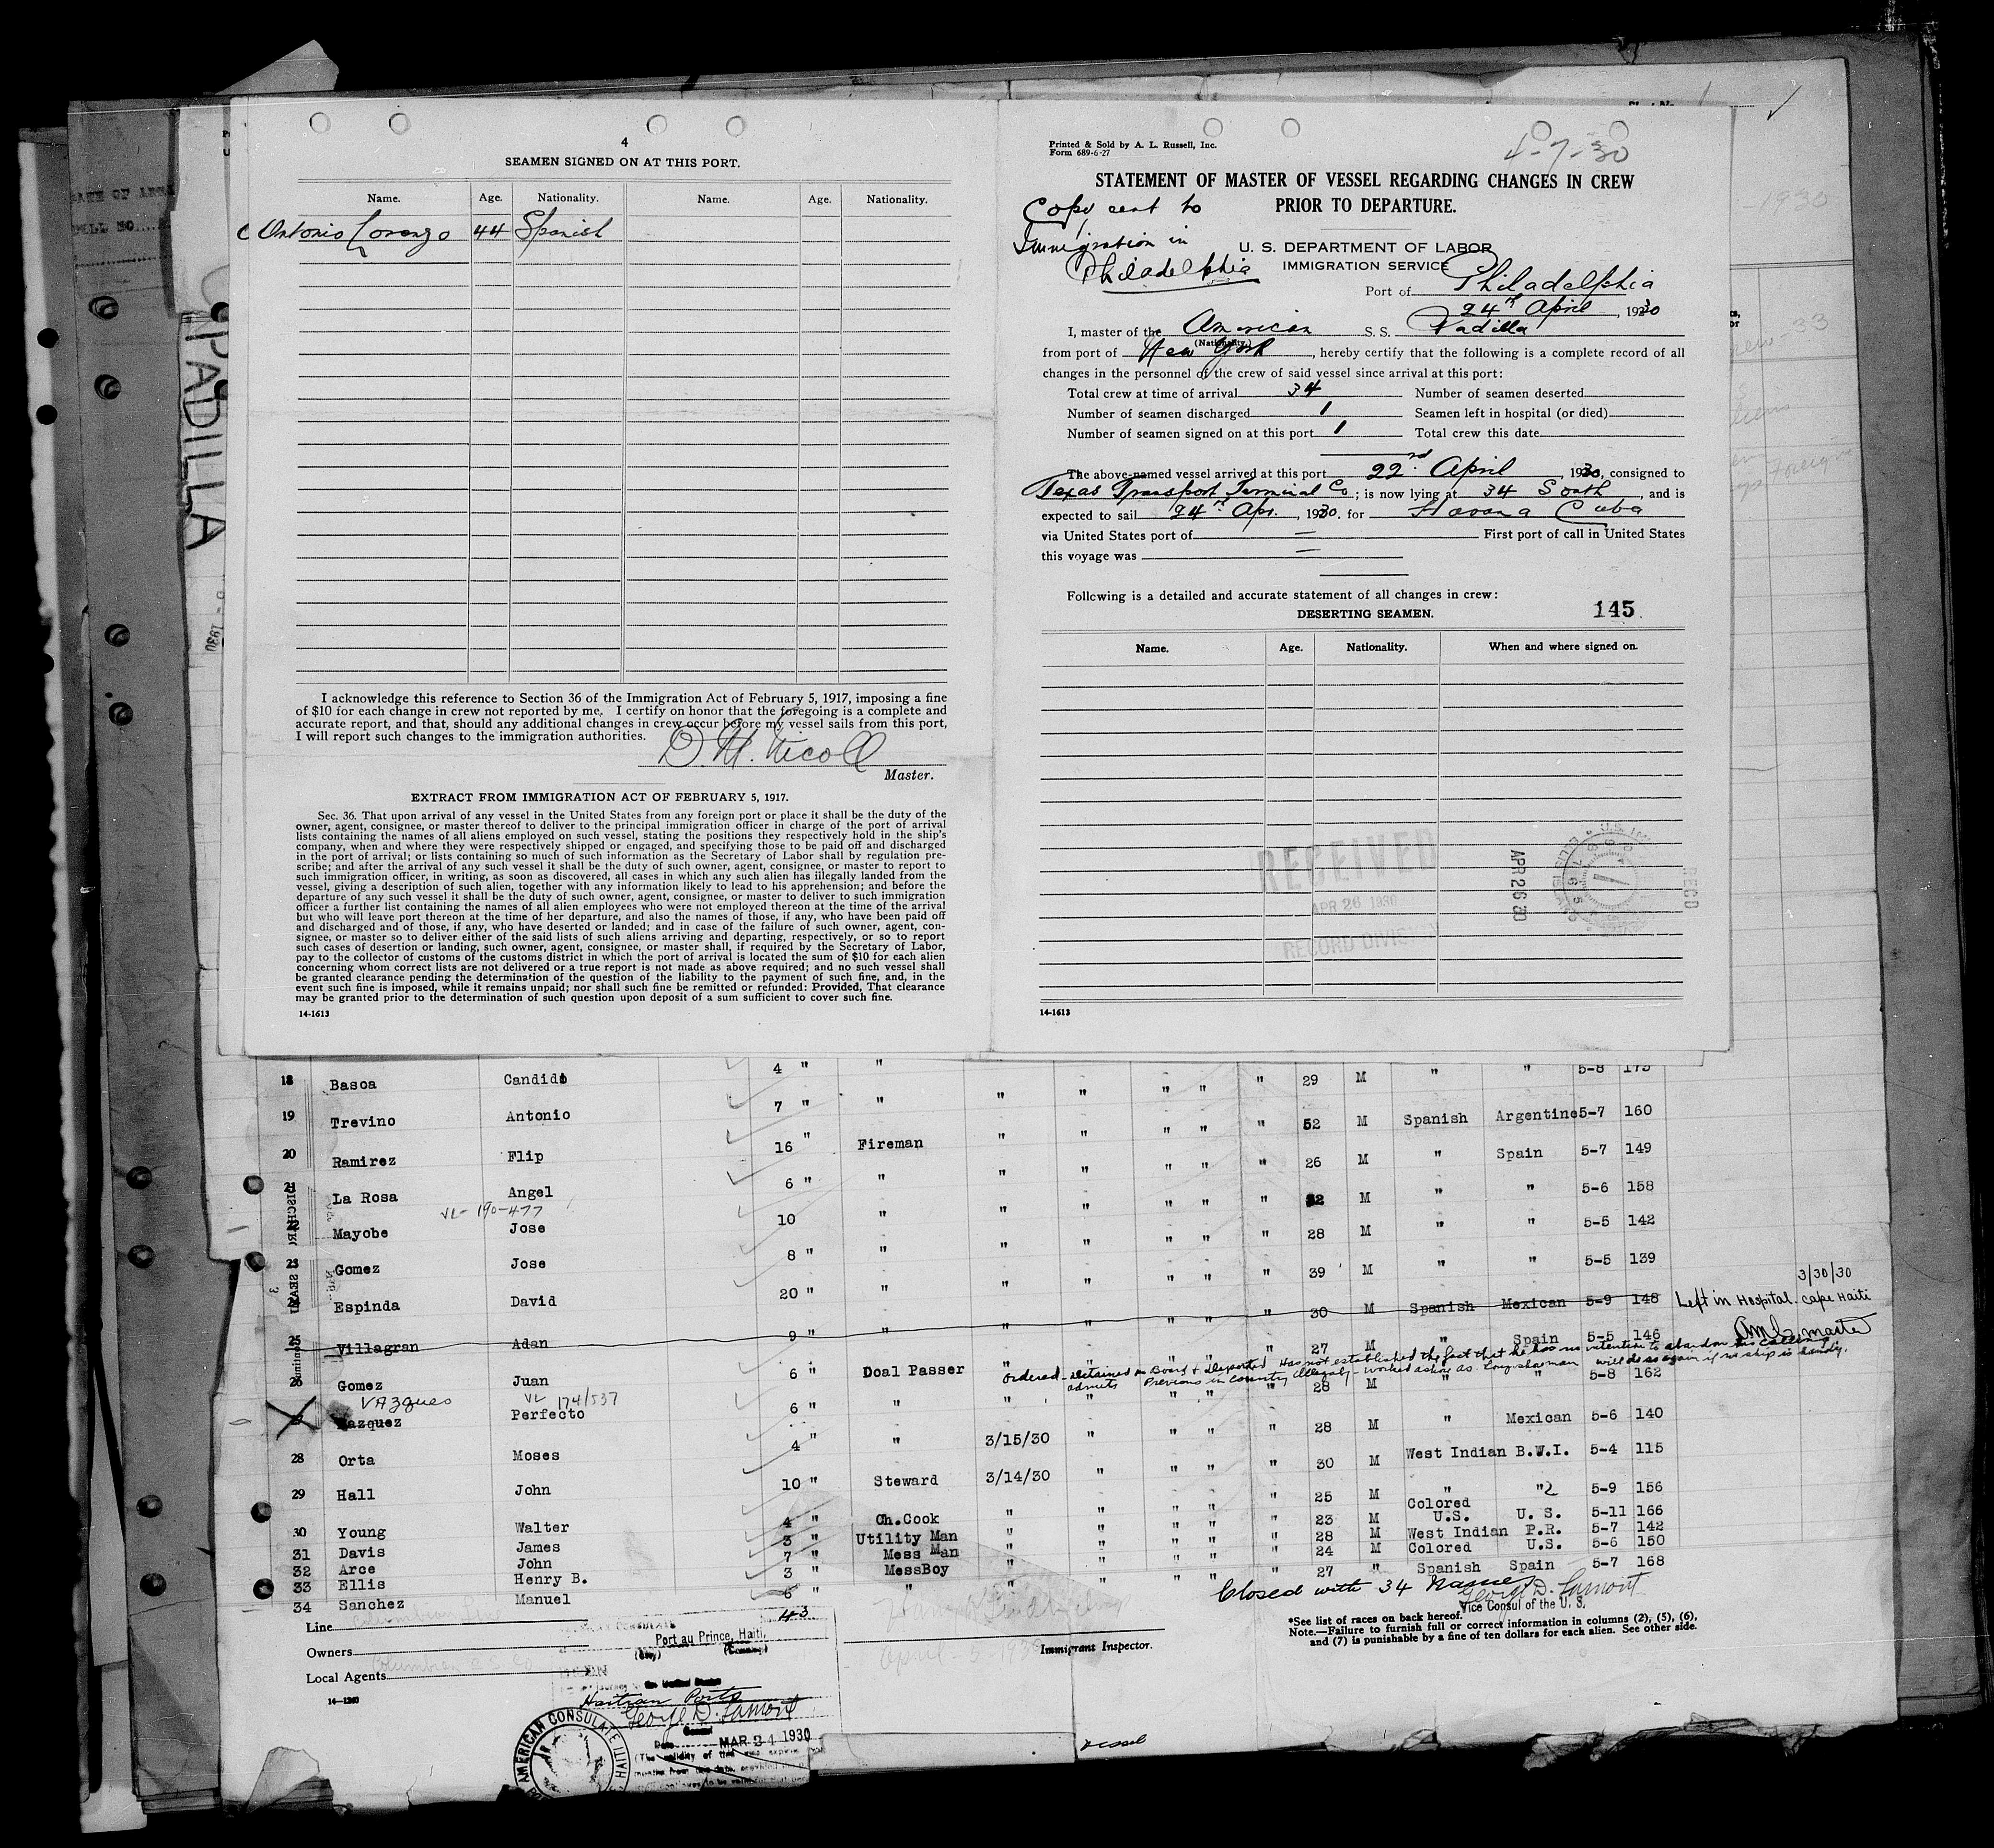 PADILLA
4
SEAMEN SIGNED ON AT THIS PORT.
Name. Age. Nationality. Name. Age. Nationality.
Antonio Lorenzo 44 Spanish
I acknowledge this reference to Section 36 of the Immigration Act of February 5, 1917, imposing a fine
of $10 for each change in crew not reported by me. I certify on honor that the foregoing is a complete and
accurate report, and that, should any additional changes in crew occur before my vessel sails from this port,
I will report such changes to the immigration authorities.
D. M. Nicoll
Master.
EXTRACT FROM IMMIGRATION ACT OF FEBRUARY 5, 1917.
Sec. 36. That upon arrival of any vessel in the United States from any foreign port or place it shall be the duty of the
owner, agent, consignee, or master thereof to deliver to the principal immigration officer in charge of the port of arrival
lists containing the names of all aliens employed on such vessel, stating the positions they respectively hold in the ship's
company, when and where they were respectively shipped or engaged, and specifying those to be paid off and discharged
in the port of arrival; or lists containing so much of such information as the Secretary of Labor shall by regulation pre-
scribe; and after the arrival of any such vessel it shall be the duty of such owner, agent, consignee, or master to report to
such immigration officer, in writing, as soon as discovered, all cases in which any such alien has illegally landed from the
vessel, giving a description of such alien, together with any information likely to lead to his apprehension; and before the
departure of any such vessel it shall be the duty of such owner, agent, consignee, or master to deliver to such immigration
officer a further list containing the names of all alien employees who were not employed thereon at the time of the arrival
but who will leave port thereon at the time of her departure, and also the names of those, if any, who have been paid off
and discharged and of those, if any, who have deserted or landed; and in case of the failure of such owner, agent, con-
signee, or master so to deliver either of the said lists of such aliens arriving and departing, respectively, or so to report
such cases of desertion or landing, such owner, agent, consignee, or master shall, if required by the Secretary of Labor,
pay to the collector of customs of the customs district in which the port of arrival is located the sum of $10 for each alien
concerning whom correct lists are not delivered or a true report is not made as above required; and no such vessel shall
be granted clearance pending the determination of the question of the liability to the payment of such fine, and, in the
event such fine is imposed, while it remains unpaid; nor shall such fine be remitted or refunded: Provided, That clearance
may be granted prior to the determination of such question upon deposit of a sum sufficient to cover such fine.
14-1613
Printed & Sold by A. L. Russell, Inc.
Form 689-6-27
4-7-30
STATEMENT OF MASTER OF VESSEL REGARDING CHANGES IN CREW
PRIOR TO DEPARTURE.
Copy sent to
Immigration in
Philadelphia
U. S. DEPARTMENT OF LABOR
IMMIGRATION SERVICE
Port of Philadelphia
24th April, 1930
I, master of the American S. S. Padilla
(Nationality.)
from port of New York, hereby certify that the following is a complete record of all
changes in the personnel of the crew of said vessel since arrival at this port:
Total crew at time of arrival 34 Number of seamen deserted
Number of seamen discharged 1 Seamen left in hospital (or died)
Number of seamen signed on at this port 1 Total crew this date
The above-named vessel arrived at this port 22nd April, 1930, consigned to
Texas Transport Terminal Co; is now lying at 34 South, and is
expected to sail 24th Apr., 1930. for Havana Cuba
via United States port of = First port of call in United States
this voyage was =
Following is a detailed and accurate statement of all changes in crew:
DESERTING SEAMEN. 145
Name. Age. Nationality. When and where signed on.
RECEIVED
APR 26 1930
RECORD DIVISION
APR 26 30
REC'D
14-1613
18 Basoa Candido 4 " " " " " " " 29 M " " 5-8 175
19 Trevino Antonio 7 " " " " " " " 52 M Spanish Argentine 5-7 160
20 Ramirez Flip 16 " Fireman " " " " " 26 M " Spain 5-7 149
21 La Rosa Angel 6 " " " " " " " 32 M " " 5-6 158
VL- 190-477
22 Mayobe Jose 10 " " " " " " 28 M " " 5-5 142
23 Gomez Jose 8 " " " " " " " 39 M " " 5-5 139
3/30/30
24 Espinda David 20 " " " " " " " 30 M Spanish Mexican 5-9 148 Left in Hospital. Cape Haiti
25 Villagran Adan 9 " " " " " " 27 M " Spain 5-5 146 master
ordered detained on Board & deported Has not established the fact that he has no intention to abandon his calling.
admits Previous in country illegally - worked ashore as Longshoreman will do so again if no ship is handy.
26 Gomez Juan 6 " Doal Passer " " " " " 28 M " " 5-8 162
VAzques VL 174/537
27 Mazquez Perfecto 6 " " " " " " " 28 M " Mexican 5-6 140
28 Orta Moses 4 " " 3/15/30 " " " " 30 M West Indian B.W.I. 5-4 115
29 Hall John 10 " Steward 3/14/30 " " " " 25 M " " 5-9 156
30 Young Walter 4 " Ch.Cook " " " " " 23 M Colored U.S. U. S. 5-11 166
31 Davis James 3 " Utility Man " " " " " 28 M West Indian P.R. 5-7 142
32 Arce John 7 " Mess Man " " " " 24 M Colored U.S. 5-6 150
33 Ellis Henry B. 3 " MessBoy " " " " " 27 " Spanish Spain 5-7 168
34 Sanchez Manuel 6 " " "
Closed with 34 Names
George D. Lamont
Vice Consul of the U. S.
Line
Owners
Local Agents
14-1240
43
Port au Prince, Haiti,
(City) (Country)
Haitian Ports
George D. Lamont
Consul
Date MAR 24 1930
AMERICAN CONSULATE
HAITI
April - 5-1930
Immigrant Inspector.
*See list of races on back hereof.
Note.—Failure to furnish full or correct information in columns (2), (5), (6),
and (7) is punishable by a fine of ten dollars for each alien. See other side.
vessel